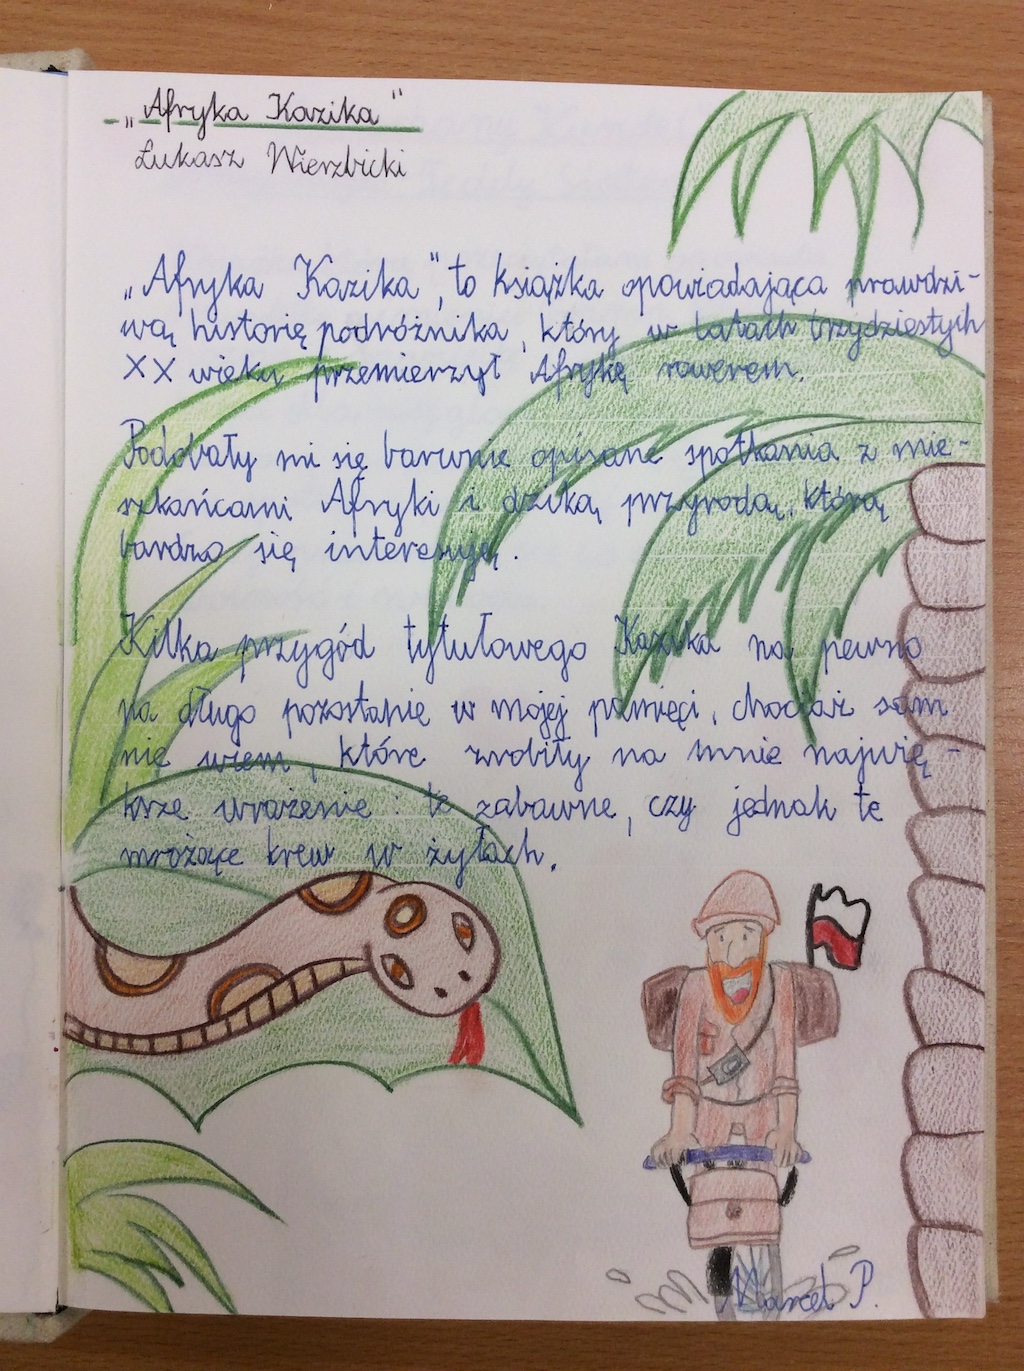 „Afryka Kazika"
Łukasz Wierzbicki
„Afryka Kazika", to książka opowiadająca prawdzi-
wą historię podróżnika, który w latach trzydziestych
XX wieku przemierzył Afrykę rowerem.
Podobały mi się barwnie opisane spotkania z mie-
szkańcami Afryki i dziką przyrodą, którą
bardzo się interesuję.
Kilka przygód tytułowego Kazika na pewno
na długo pozostanie w mojej pamięci, chociaż sam
nie wiem, które zrobiły na mnie najwię-
ksze wrażenie: te zabawne, czy jednak te
mrożące krew w żyłach.
Marcel P.